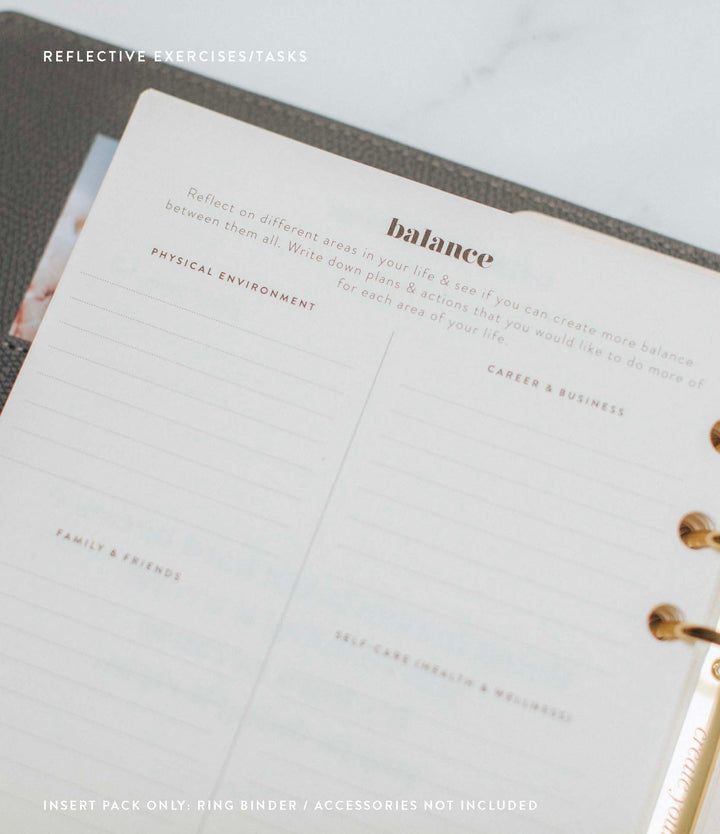 REFLECTIVE EXERCISES/TASKS
balance
Reflect on different areas in your life & see if you can create more balance
between them all. Write down plans & actions that you would like to do more of
for each area of your life.
PHYSICAL ENVIRONMENT
CAREER & BUSINESS
FAMILY & FRIENDS
SELF CARE (HEALTH & WELLNESS)
create your
INSERT PACK ONLY: RING BINDER / ACCESSORIES NOT INCLUDED